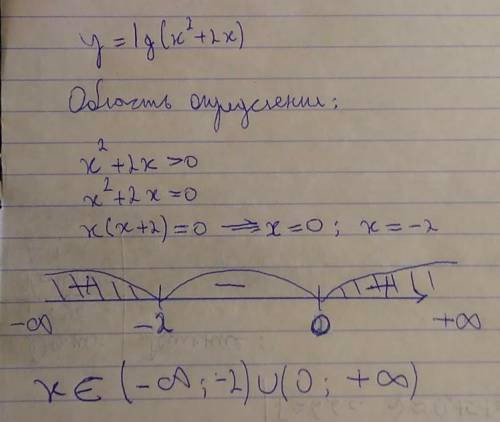 y = lg(x² + 2x)
Область определения;
x² + 2x > 0
x² + 2x = 0
x(x+2) = 0 ⟹ x = 0; x = -2
++ — ++
-∞ -2 0 +∞
x ∈ (-∞; -2) ∪ (0; +∞)